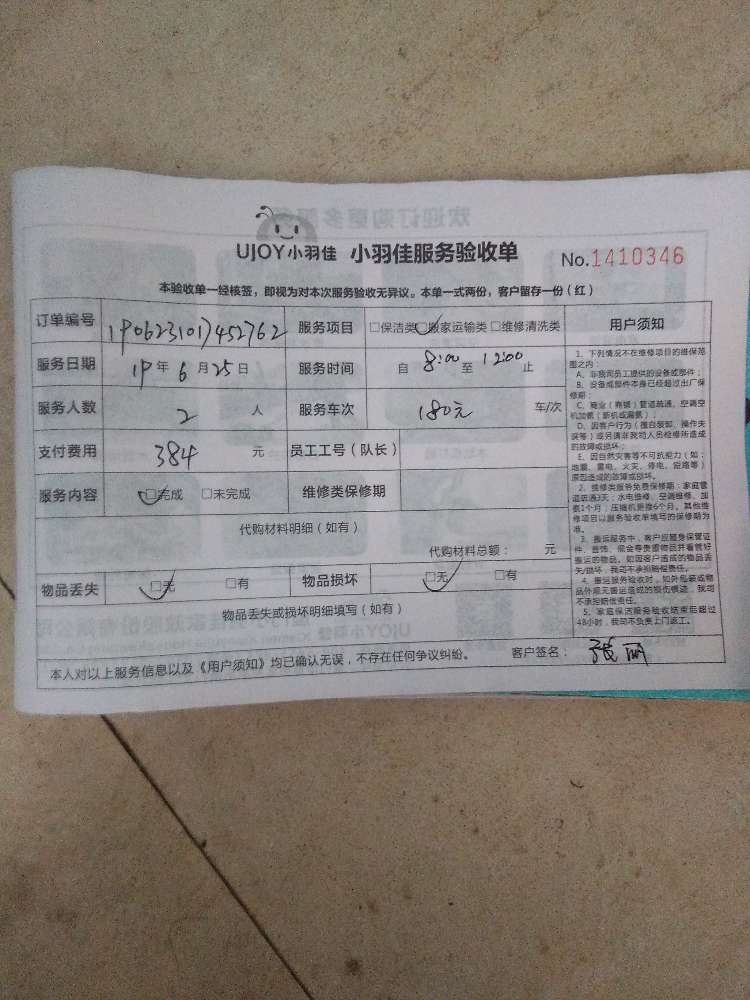 UJOY小羽佳 小羽佳服务验收单 No.1410346
本验收单一经核签,即视为对本次服务验收无异议。本单一式两份,客户留存一份(红)
订单编号 1906231017452762 服务项目 □保洁类 □搬家运输类 □维修清洗类
服务日期 19年6月25日 服务时间 自 8:00 至 12:00 止
服务人数 2 人 服务车次 180元 车/次
支付费用 384 元 员工工号(队长)
服务内容 □完成 □未完成 维修类保修期
代购材料明细(如有)
代购材料总额: 元
物品丢失 □无 □有 物品损坏 □无 □有
物品丢失或损坏明细填写(如有)
本人对以上服务信息以及《用户须知》均已确认无误,不存在任何争议纠纷。 客户签名: 张丽
用户须知
1、下列情况不在维修项目的维保范
围之内:
A、非我司员工提供的设备或部件;
B、设备或部件本身已经超过出厂保
修期;
C、商业(商铺)管道疏通,空调空
机加氨(新机或漏氨);
D、因客户行为(擅自装卸、操作失
误等)或另请非我司人员检修所造成
的故障或损坏;
E、因自然灾害等不可抗能力(如:
地震、雷电、火灾、停电、短路等)
原因造成的故障或损坏。
2、维修类服务免费保修期:家庭管
道疏通3天;水电维修、空调维修、加
氨1个月;压缩机更换6个月。其他维
修项目以服务验收单填写的保修期为
准。
3、搬运服务中,客户应随身保管证
件、首饰、现金等贵重物品并看管好
搬运的物品。如因客户造成的物品丢
失/损坏,我司不承担赔偿责任。
4、搬运服务验收时,如外包装或物
品外观无搬运造成的损伤痕迹,我司
不承担赔偿责任。
5、家庭保洁服务验收结束后超过
48小时,我司不负责上门返工。